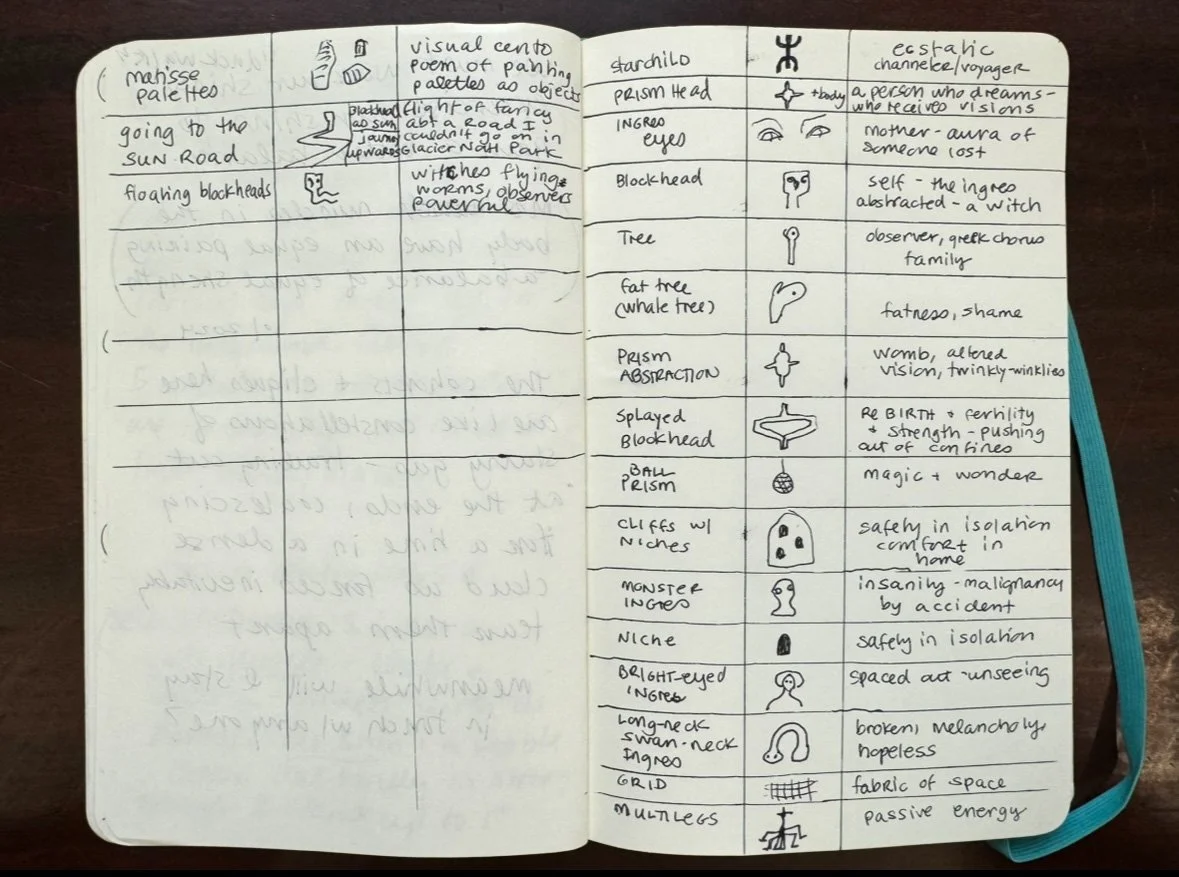 matisse
palettes
visual cento
poem of painting
palettes as objects
going to the
SUN ROAD
Blockhead
as sun
journey
upwards
flight of fancy
abt a Road I
couldn't go on in
Glacier Natl Park
floating blockheads
witches flying
worms, observers
powerful
starchild
ecstatic
channeler/voyager
PRISM HEAD
+body
a person who dreams-
who receives visions
INGRES
eyes
mother - aura of
someone lost
Blockhead
self - the ingres
abstracted - a witch
Tree
observer, greek chorus
family
fat tree
(whale tree)
fatness, shame
PRISM
ABSTRACTION
womb, altered
vision, twinkly-winklies
Splayed
Blockhead
REBIRTH + fertility
+ strength - pushing
out of confines
BALL
PRISM
magic + wonder
CLIFFS w/
NICHES
safety in isolation
comfort in
home
MONSTER
INGRES
insanity - malignancy
by accident
NICHE
safety in isolation
BRIGHT-eyed
INGRES
spaced out - unseeing
Long-neck
swan-neck
Ingres
broken, melancholy,
hopeless
GRID
fabric of space
MULTILEGS
passive energy